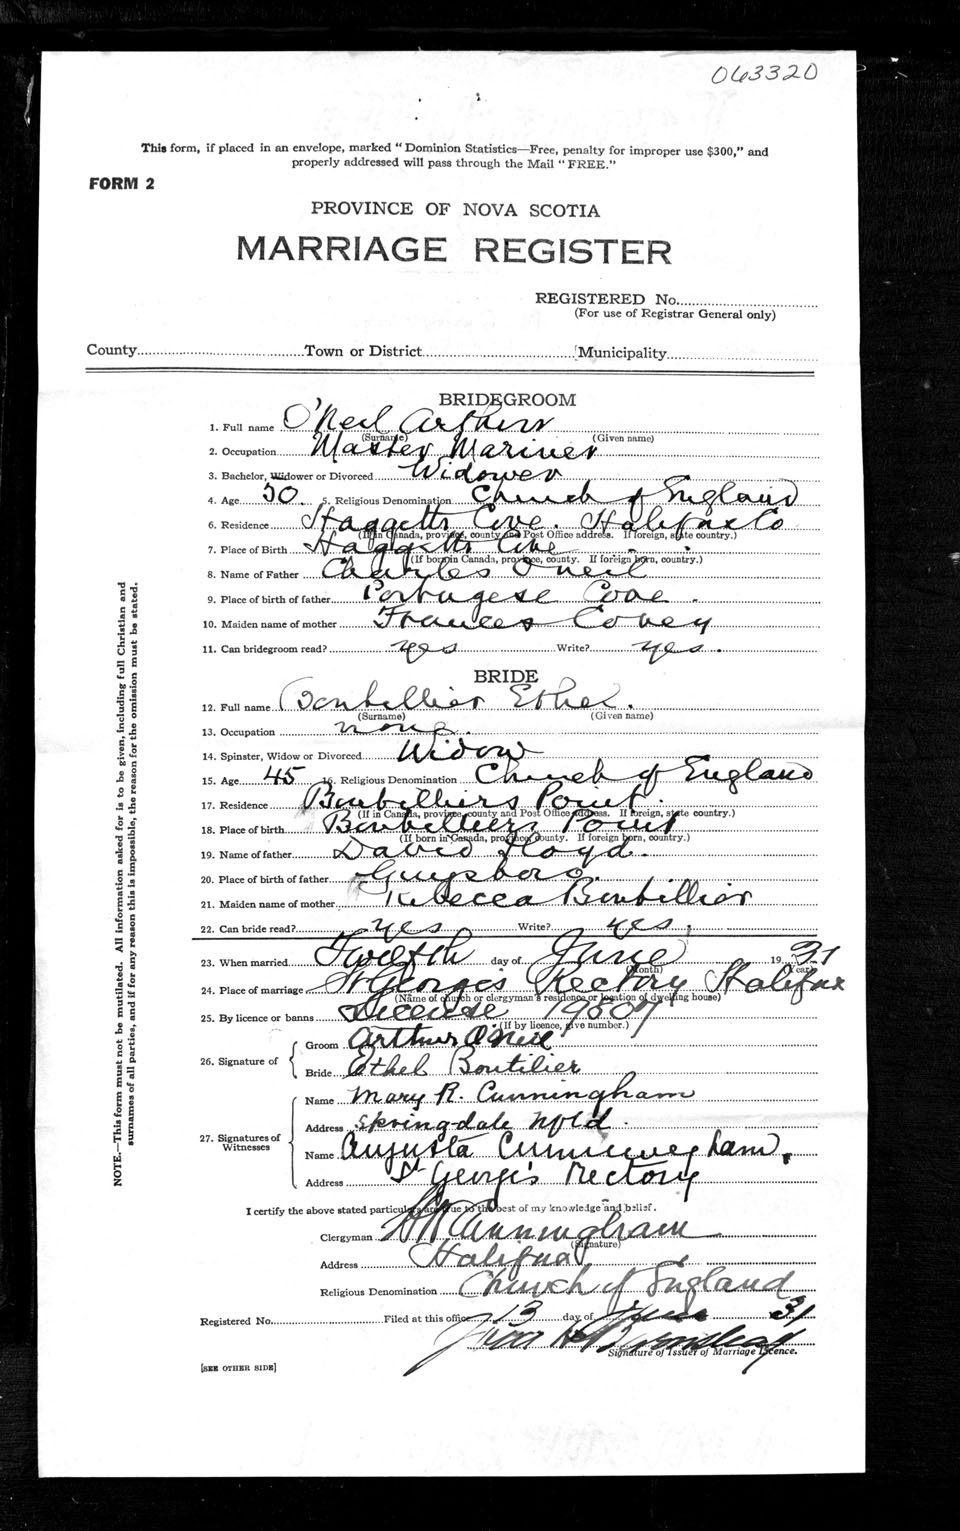 063320
This form, if placed in an envelope, marked "Dominion Statistics—Free, penalty for improper use $300," and
properly addressed will pass through the Mail "FREE."
FORM 2
PROVINCE OF NOVA SCOTIA
MARRIAGE REGISTER
REGISTERED No.
(For use of Registrar General only)
County Town or District Municipality
BRIDEGROOM
1. Full name O'Neil Arthur
(Surname) (Given name)
2. Occupation Master Mariner
3. Bachelor, Widower or Divorced Widower
4. Age 50 5. Religious Denomination Church of England
6. Residence Haggetts Cove. Halifax Co
(If in Canada, province, county and Post Office address. If foreign, state country.)
7. Place of Birth Haggetts Cove
(If born in Canada, province, county. If foreign born, country.)
8. Name of Father Charles O'neil
9. Place of birth of father Portugese Cove
10. Maiden name of mother Frances Covey
11. Can bridegroom read? yes Write? yes.
BRIDE
12. Full name Boutillier Ethel.
(Surname) (Given name)
13. Occupation none.
14. Spinster, Widow or Divorced Widow
15. Age 45 16. Religious Denomination Church of England
17. Residence Boutilliers Point.
(If in Canada, province, county and Post Office address. If foreign, state country.)
18. Place of birth Boutilliers Point
(If born in Canada, province, county. If foreign born, country.)
19. Name of father David Floyd.
20. Place of birth of father Guysboro.
21. Maiden name of mother Rebecca Boutillier
22. Can bride read? yes Write? yes
23. When married Twelfth day of June 1931
(Month) (Year)
24. Place of marriage St George's Rectory Halifax
(Name of church or clergyman's residence or location of dwelling house)
25. By licence or banns License 19507
(If by licence, give number.)
26. Signature of
Groom Arthur O'Neil
Bride Ethel Boutilier
27. Signatures of Witnesses
Name Mary R. Cunningham
Address Springdale Nfld.
Name Augusta Cunningham.
Address St George's Rectory
I certify the above stated particulars are true to the best of my knowledge and belief.
Clergyman Cunningham
(Signature)
Address Halifax
Religious Denomination Church of England
Registered No. Filed at this office 13 day of June 31
Signature of Issuer of Marriage Licence.
[SEE OTHER SIDE]
NOTE.—This form must not be mutilated. All information asked for is to be given, including full Christian and
surnames of all parties, and if for any reason this is impossible, the reason for the omission must be stated.